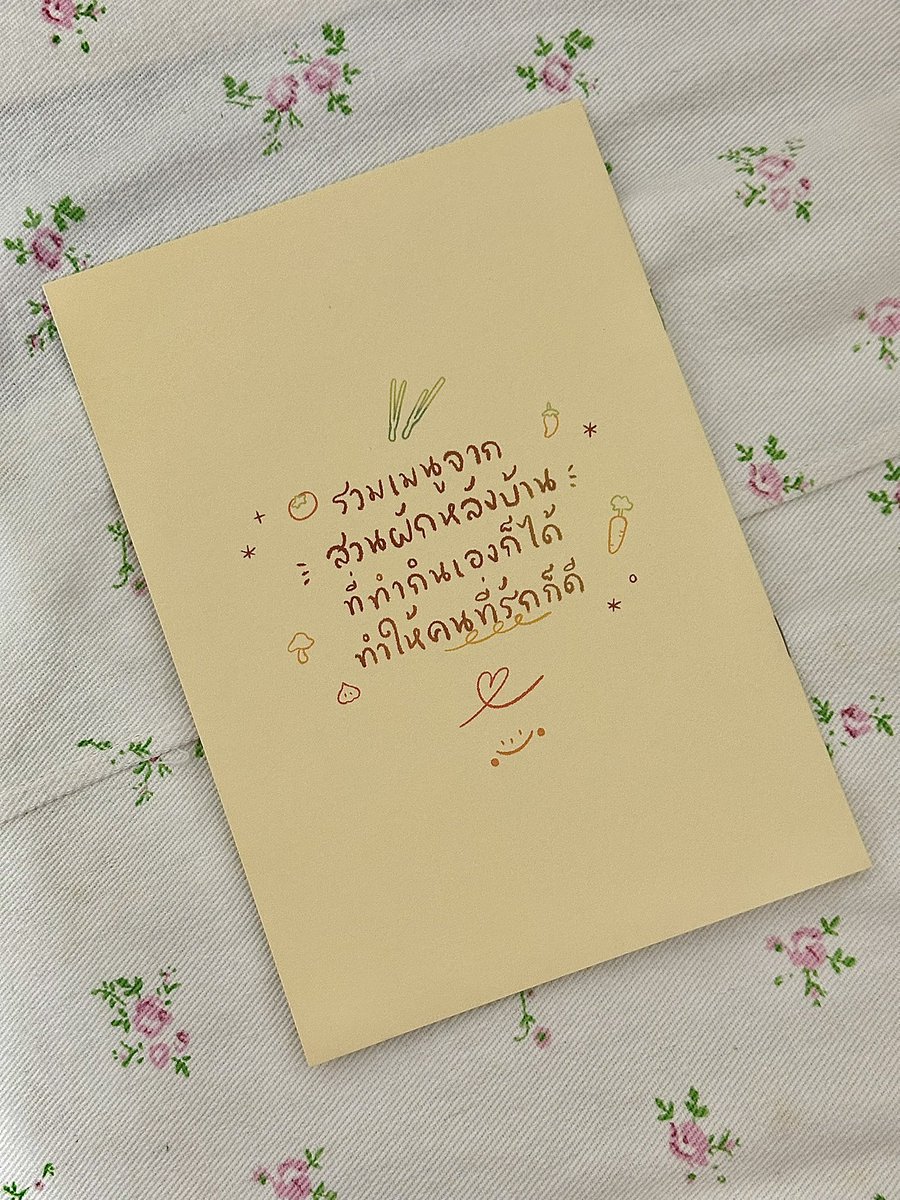 รวมเมนูจาก
สวนผักหลังบ้าน
ที่ทำกินเองก็ได้
ทำให้คนที่รักก็ดี